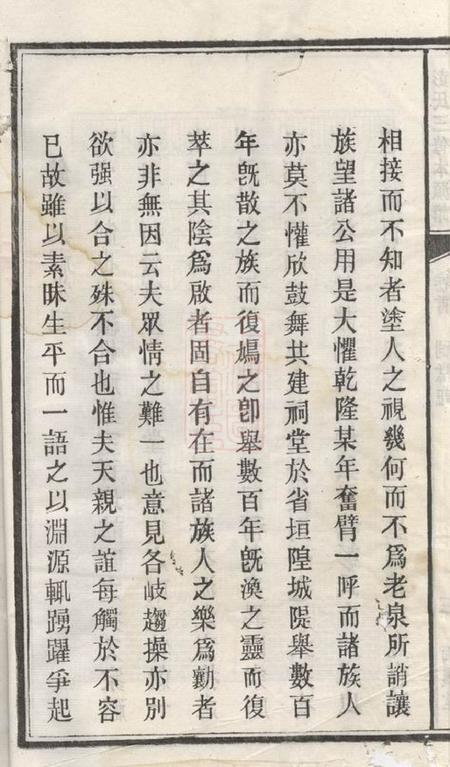 相接而不知者塗人之視幾何而不爲老泉所誚讓
族望諸公用是大懼乾隆某年奮臂一呼而諸族人
亦莫不懽欣鼓舞共建祠堂於省垣隍城隄舉數百
年旣散之族而復鳩之卽舉數百年旣渙之靈而復
萃之其陰爲啟者固自有在而諸族人之樂爲勷者
亦非無因云夫眾情之難一也意見各岐趨操亦別
欲强以合之殊不合也惟夫天親之誼每觸於不容
已故雖以素昧生平而一語之以淵源輒踴躍爭起